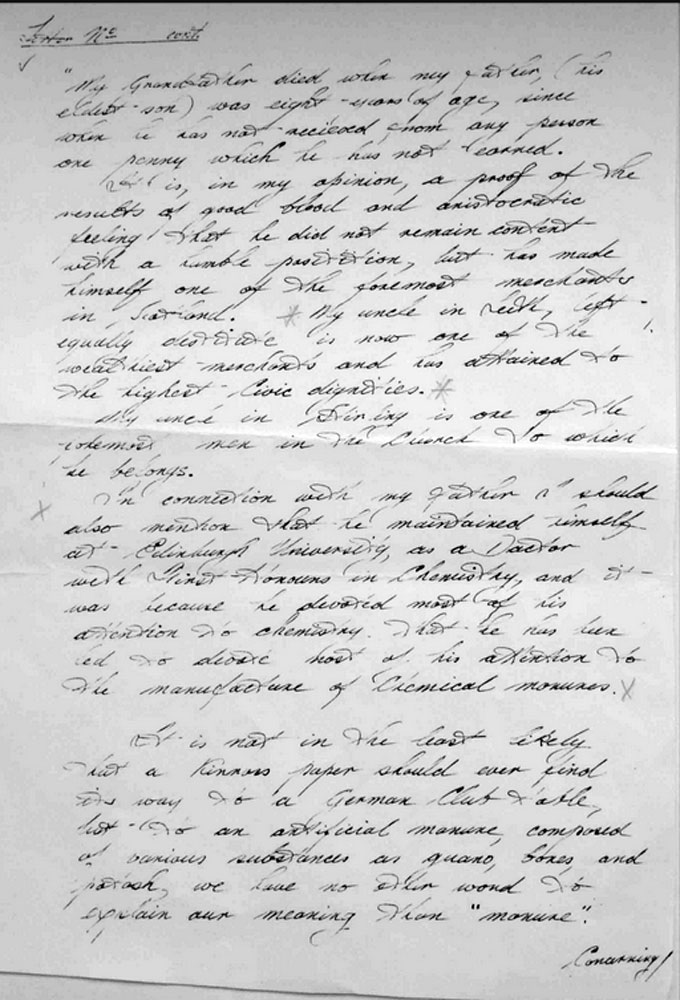 Letter No cont.
"My Grandfather died when my father, (his
eldest son) was eight years of age, since
when he has not recieved from any person
one penny which he has not earned.
It is, in my opinion, a proof of the
results of good blood and aristocratic
feeling that he did not remain content
with a humble position, but has made
himself one of the foremost merchants
in Scotland. My uncle in Leith, left
equally is now one of the
wealthiest merchants and has attained to
the highest Civic dignities.
My uncle in Stirling is one of the
foremost men in the Church to which
he belongs.
In connection with my father I should
also mention that he maintained himself
at Edinburgh University, as a Doctor
with First Honours in Chemistry, and it
was because he devoted most of his
attention to chemistry. That he has been
led to devote most of his attention to
the manufacture of Chemical manures.
It is not in the least likely
that a Kinross paper should ever find
its way to a German Club table,
but to an artificial manure, composed
of various substances as guano, bones, and
potash, we have no other word to
explain our meaning than "manure".
Concerning/